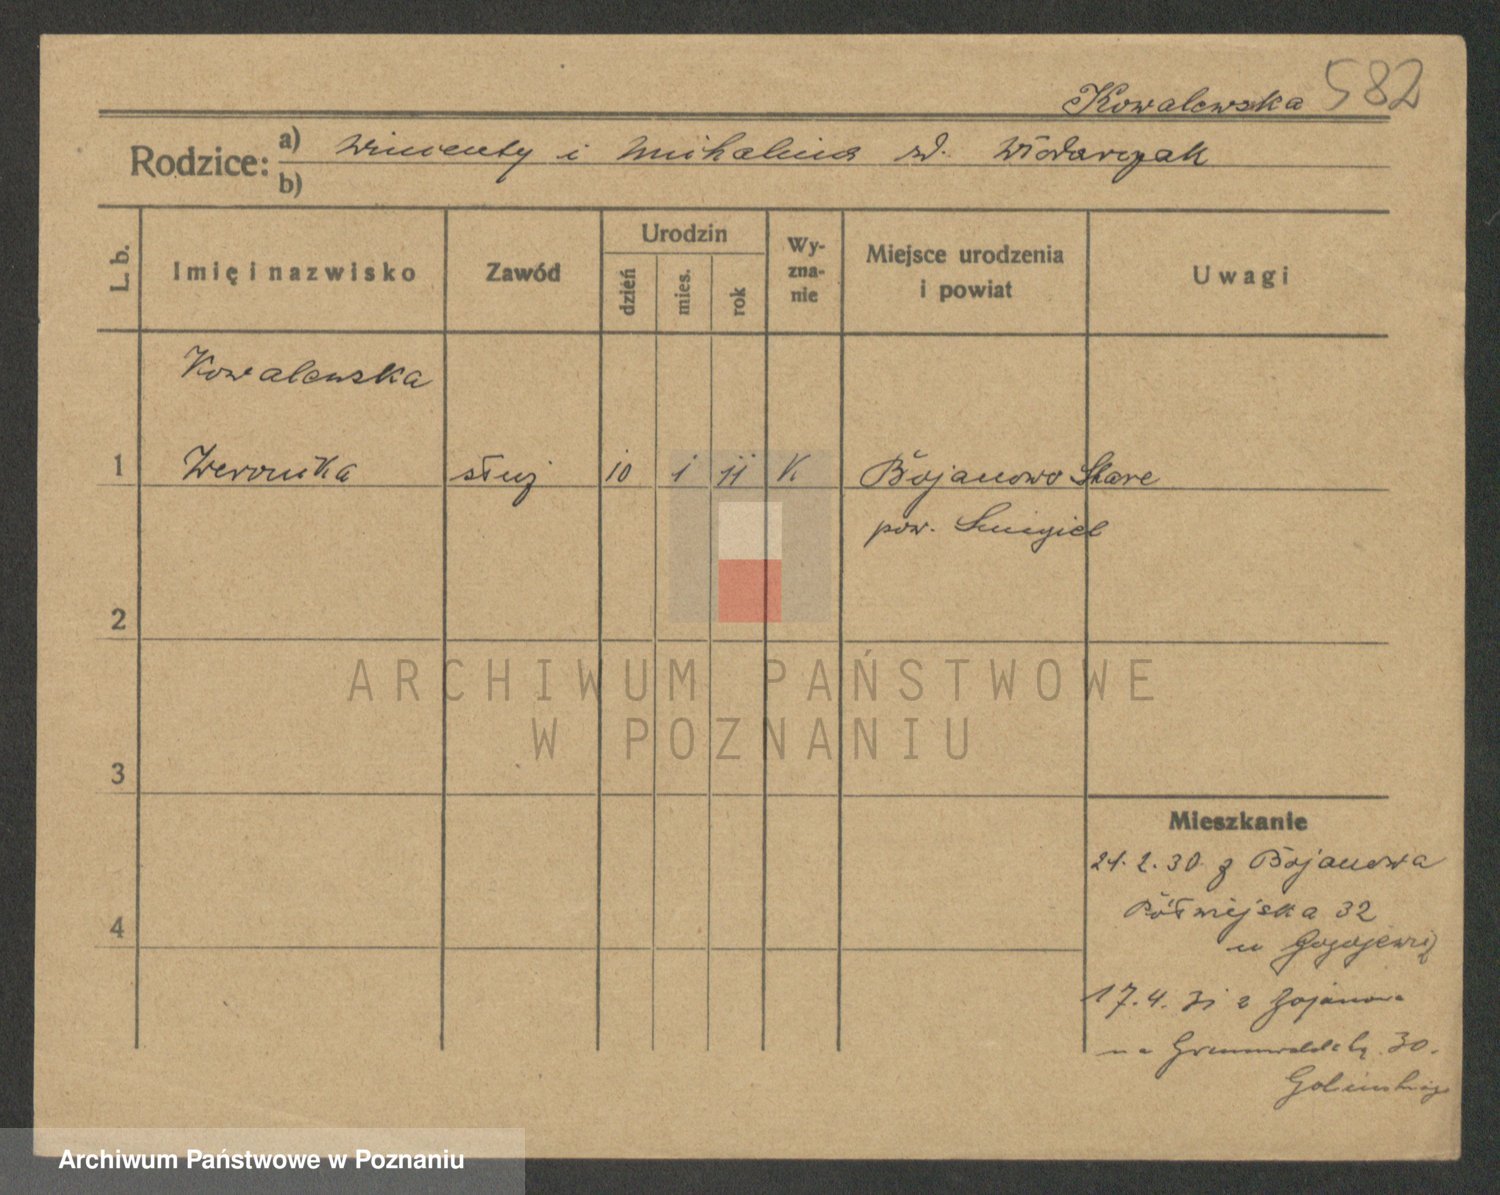 Kowalewska 582
Rodzice: a) Wincenty i Mihalina zd. Włodarczak
b)
L. b.
Imię i nazwisko
Zawód
Urodzin
dzień
mies.
rok
Wy-
zna-
nie
Miejsce urodzenia
i powiat
Uwagi
Kowalewska
1 Weronika służ 10 1 11 K Bojanowo Stare
pow. Śmigiel
2
3
4
Mieszkanie
21.2.30. z Bojanowa
Półwiejska 32
u
17.4.31 z Bojanowa
na Grunwaldzką 30.
ARCHIWUM PAŃSTWOWE
W POZNANIU
Archiwum Państwowe w Poznaniu